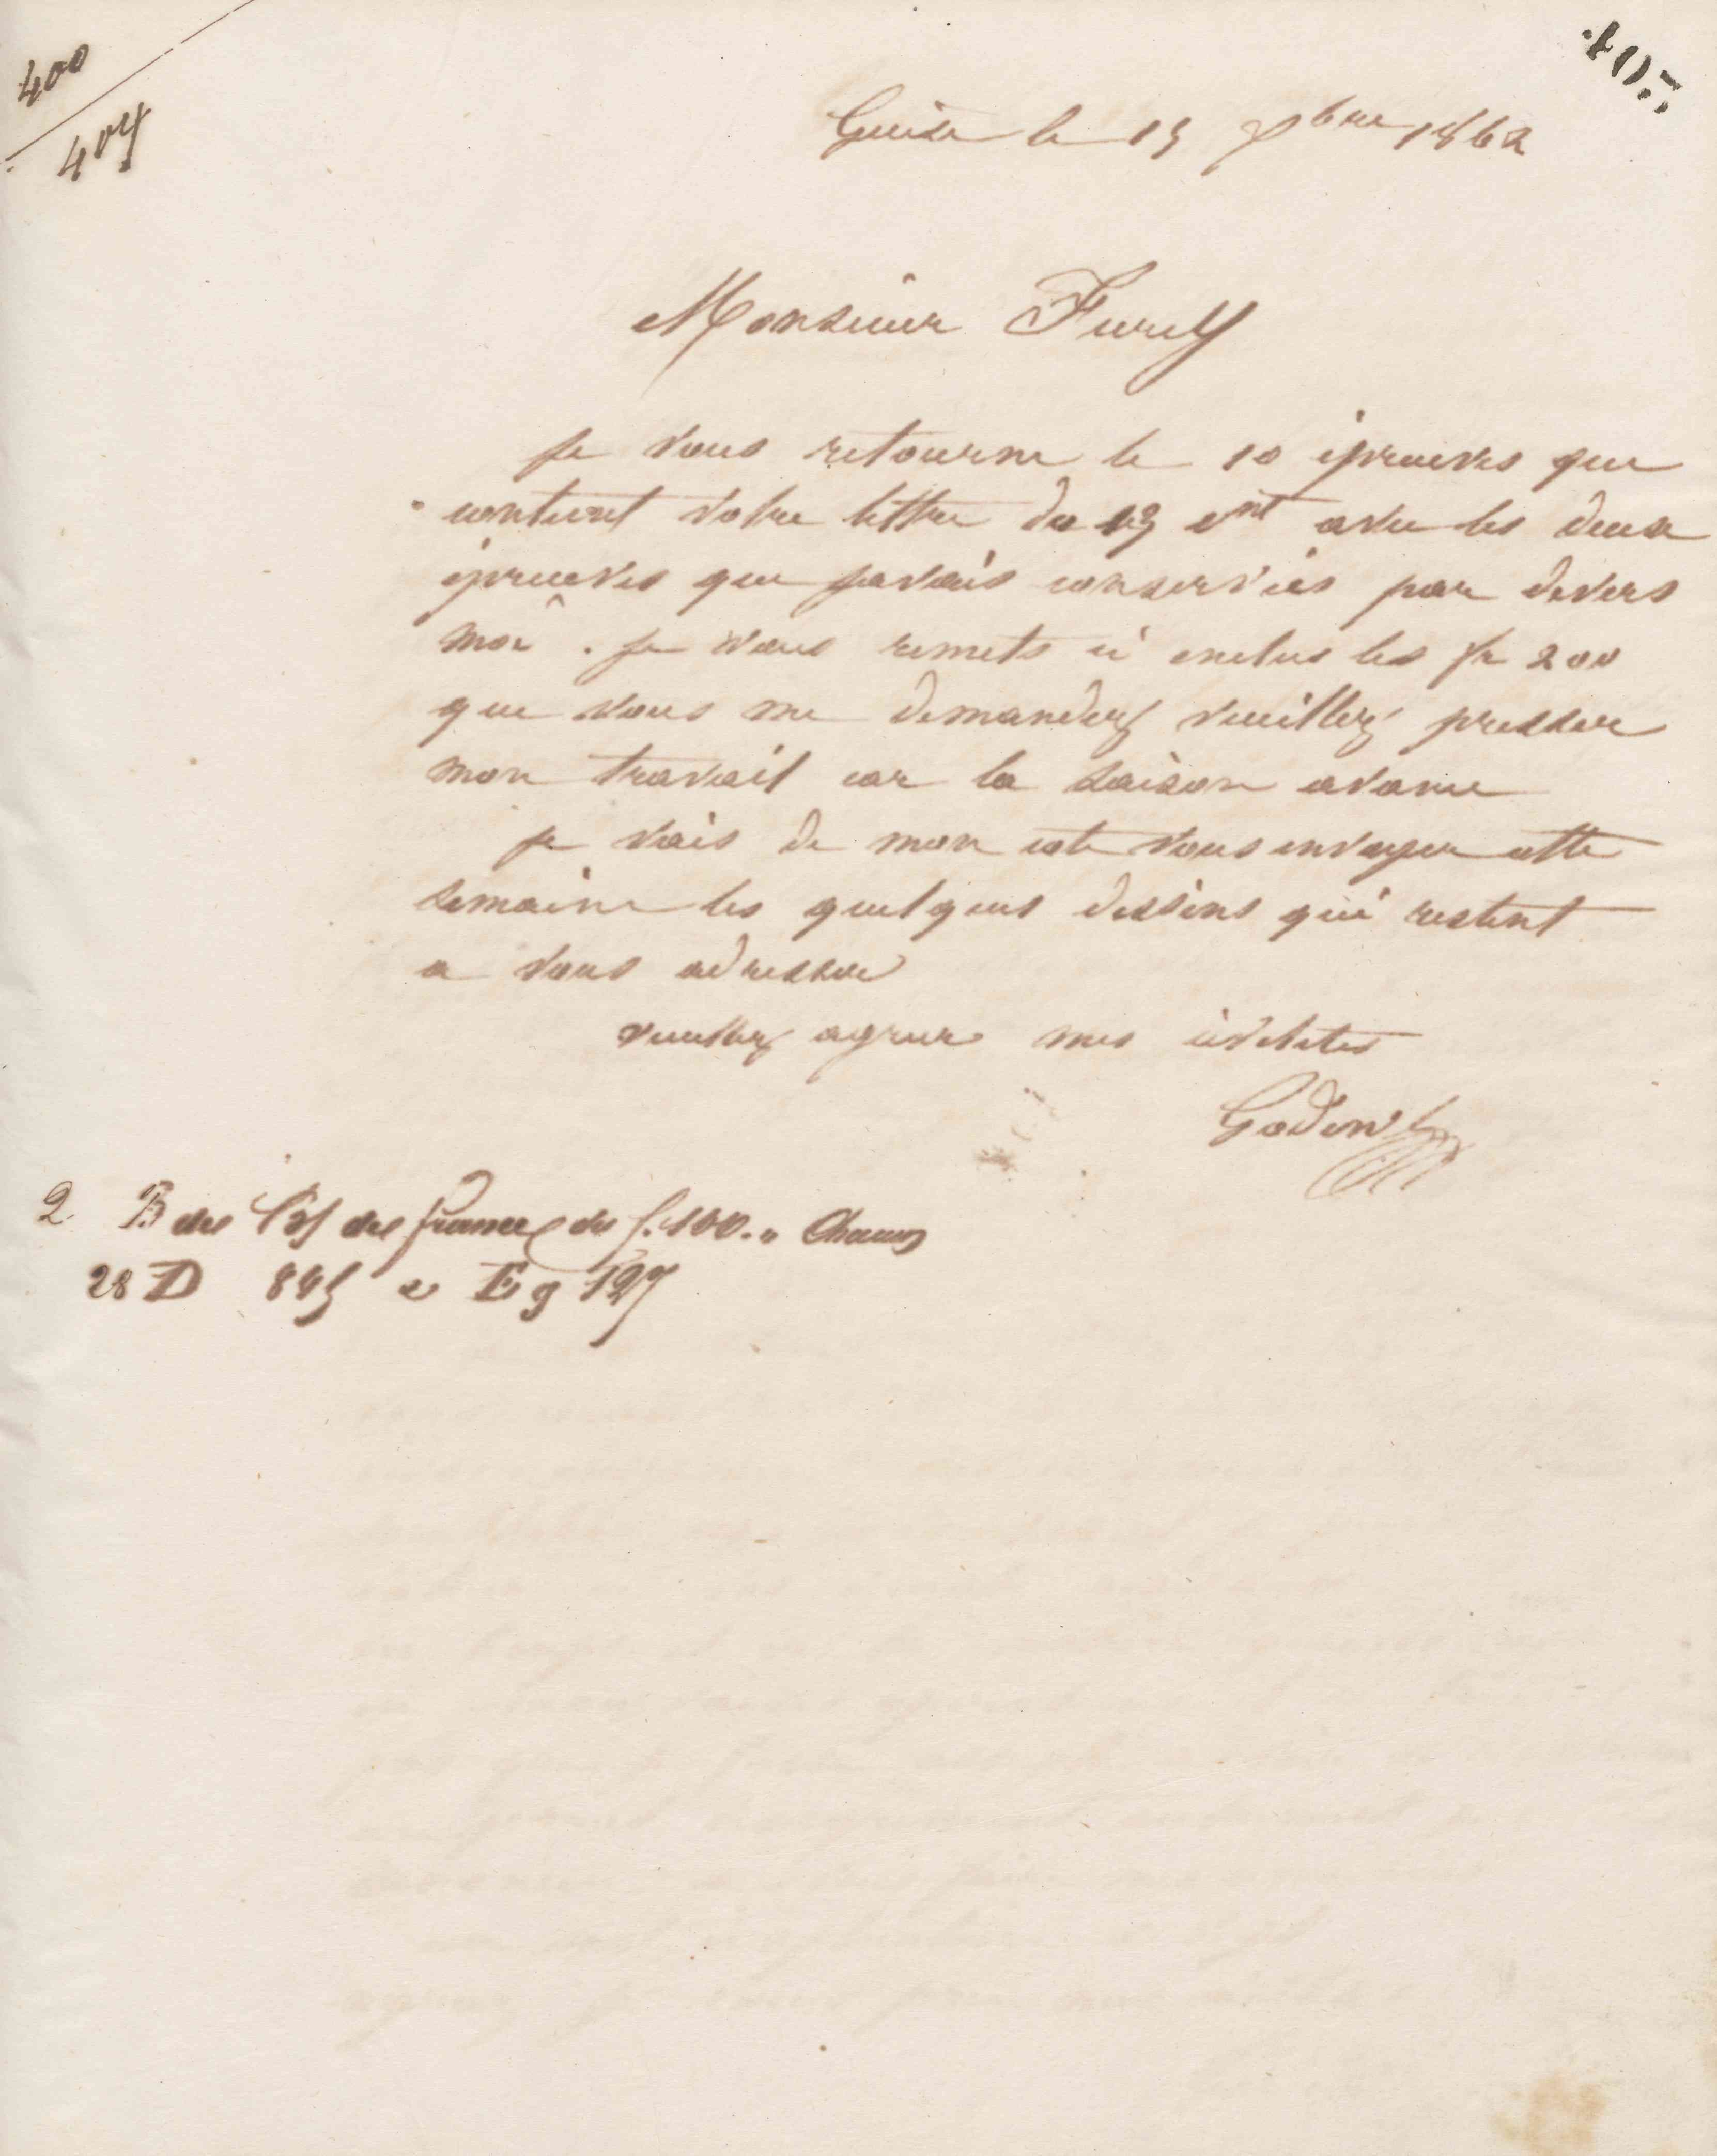 400
404
405
Guise le 15 7bre 1862
Monsieur Furcy
Je vous retourne le 10 épreuves que
contient votre lettre du 13 ct avec les deux
épreuves que javais conservées par devers
moi. Je vous remets ci inclus les fr 200
que vous me demandez veuillez presser
mon travail car la saison avance
je vais de mon cote vous envoyer cette
semaine les quelques dessins qui restent
a vous adresser
veuillez agreer mes civilites
Godin
2 B de de france de f. 100. " Chacun
28 D 845 e E 9 127